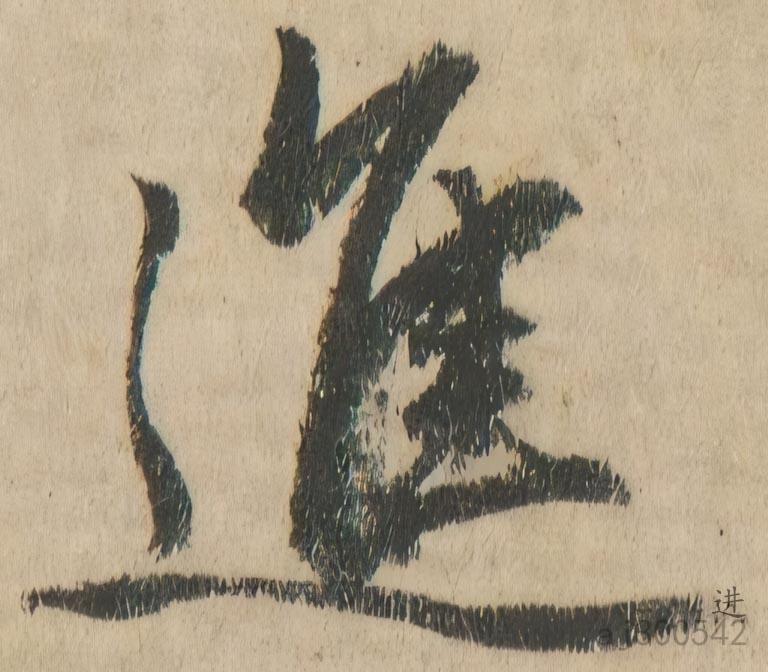 進
进
aj300542